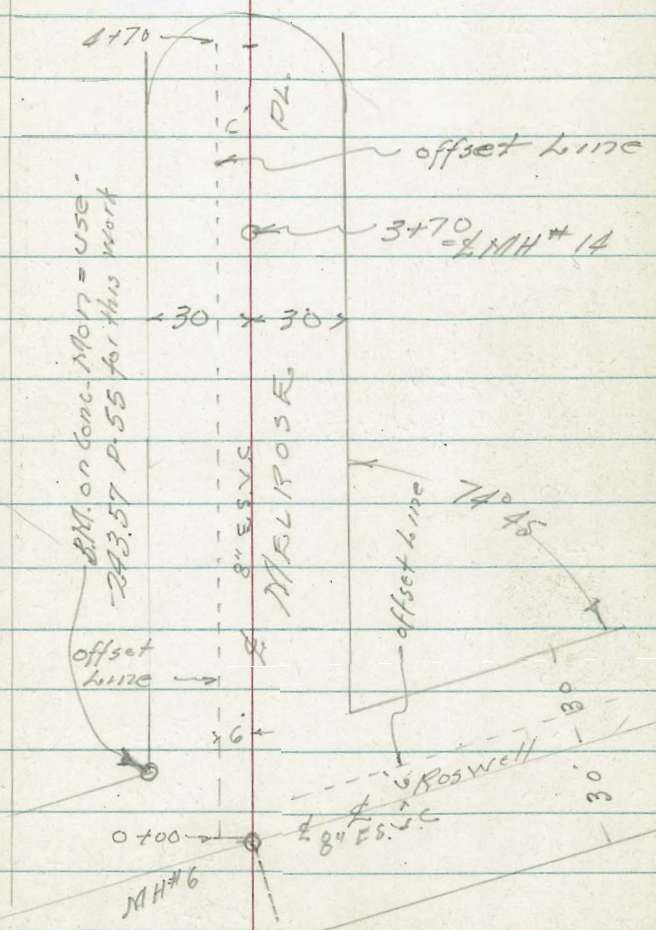 4+70
6'
PL.
offset Line
3+70
=℄ MH # 14
30
30'
B.M. on Conc. Mon = use
243.57 P-55 for this work
8" E.S.V.C.
℄ MELROSE
offset Line
74° 45
offset
Line
6'
30'
30'
6
Roswell
℄
℄ 8" E.S.V.C
0+00
MH#6